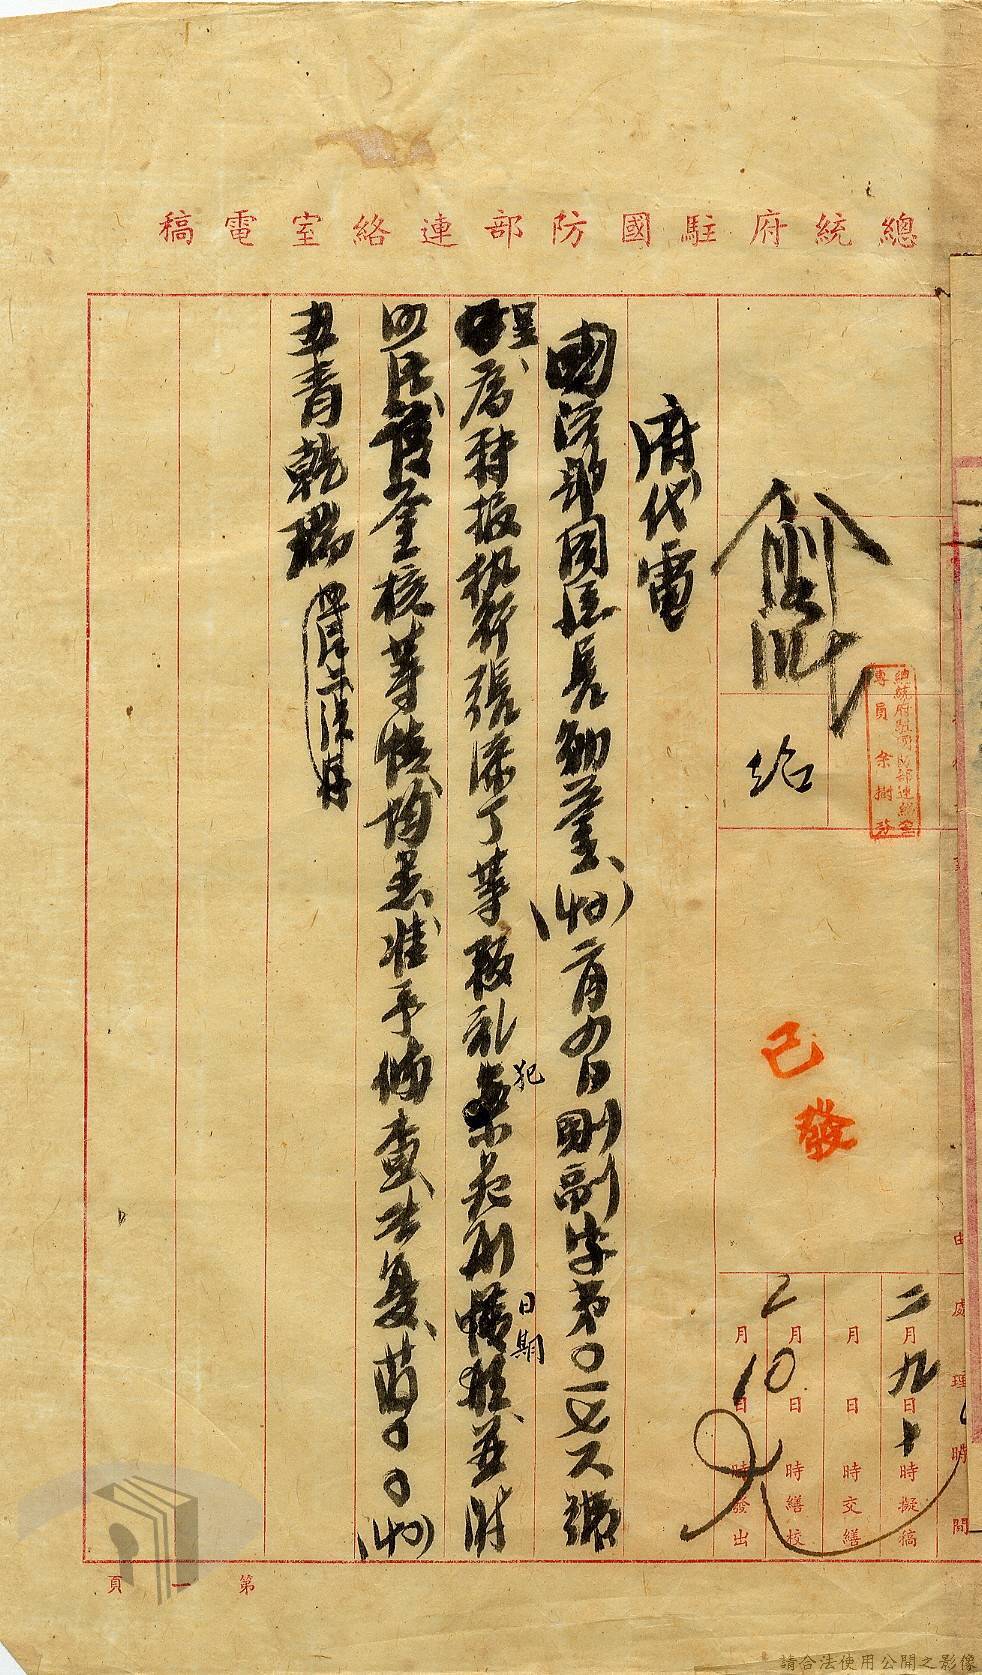 總統府駐國防部連絡室電稿
總統府駐國防部連絡室
專員 余樹芬
已發
由處理時間
二月九日十時擬稿
月 日 時交繕
2月10日 時繕校
月 日 時發出
府代電
國防部周總長勛鑒(40)二月 日剛副字第〇一七 號
呈為轉報執行張添丁等叛亂犯死刑日期 並附
鑒核等情均悉准予備查此復蔣〇〇(40)
丑青乾瑞
第一頁
請合法使用公開之影像